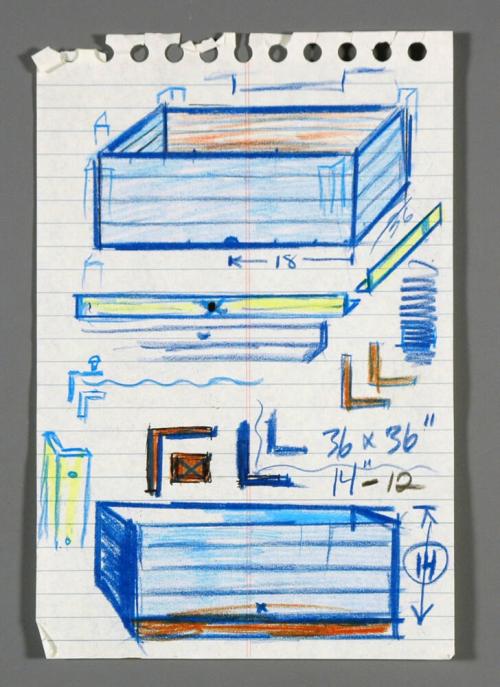 36
18
36 x 36"
14" - 12
14